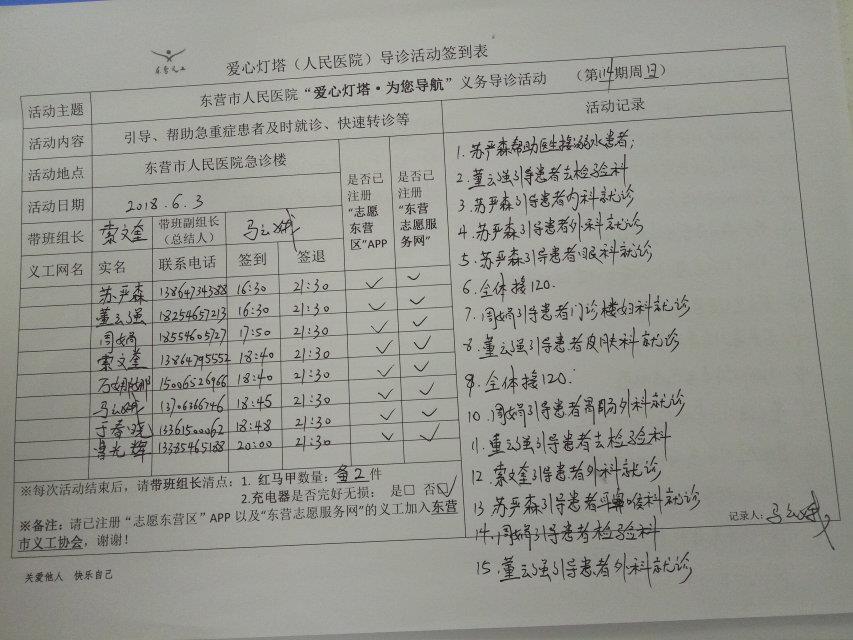 东营义工
爱心灯塔（人民医院）导诊活动签到表
活动主题 东营市人民医院“爱心灯塔·为您导航”义务导诊活动 （第114期周日）
活动内容 引导、帮助急重症患者及时就诊、快速转诊等
活动地点 东营市人民医院急诊楼
活动日期 2018.6.3
是否已注册“志愿东营区”APP
是否已注册“东营志愿服务网”
带班组长 索文奎 带班副组长（总结人） 马云娥
义工网名 实名 联系电话 签到 签退
苏严森 13864734388 16:30 21:30 ✓ ✓
董云强 18254657213 16:30 21:30 ✓ ✓
周娟 18554605727 17:50 21:30 ✓ ✓
索文奎 13864795552 18:40 21:30 ✓ ✓
15006526966 18:40 21:30 ✓ ✓
马云娥 13706366746 18:45 21:30 ✓ ✓
于春晓 13361500062 18:48 21:30 ✓ ✓
曹光辉 13385465188 20:00 21:30 ✓ ✓
※每次活动结束后，请带班组长清点：1. 红马甲数量：备2件
2.充电器是否完好无损： 是□ 否☑
※备注：请已注册“志愿东营区”APP 以及“东营志愿服务网”的义工加入东营
市义工协会，谢谢！
关爱他人 快乐自己
活动记录
1. 苏严森帮助医生接溺水患者；
2. 董云强引导患者去检验科
3. 苏严森引导患者内科就诊
4. 苏严森引导患者外科就诊
5. 苏严森引导患者眼科就诊
6. 全体接120.
7. 周娟引导患者门诊楼妇科就诊
8. 董云强引导患者皮肤科就诊
9. 全体接120.
10. 周娟引导患者胃肠外科就诊
11. 董云强引导患者去检验科
12. 索文奎引导患者外科就诊
13 苏严森引导患者耳鼻喉科就诊
14. 周娟引导患者检验科
15. 董云强引导患者外科就诊
记录人：马云娥